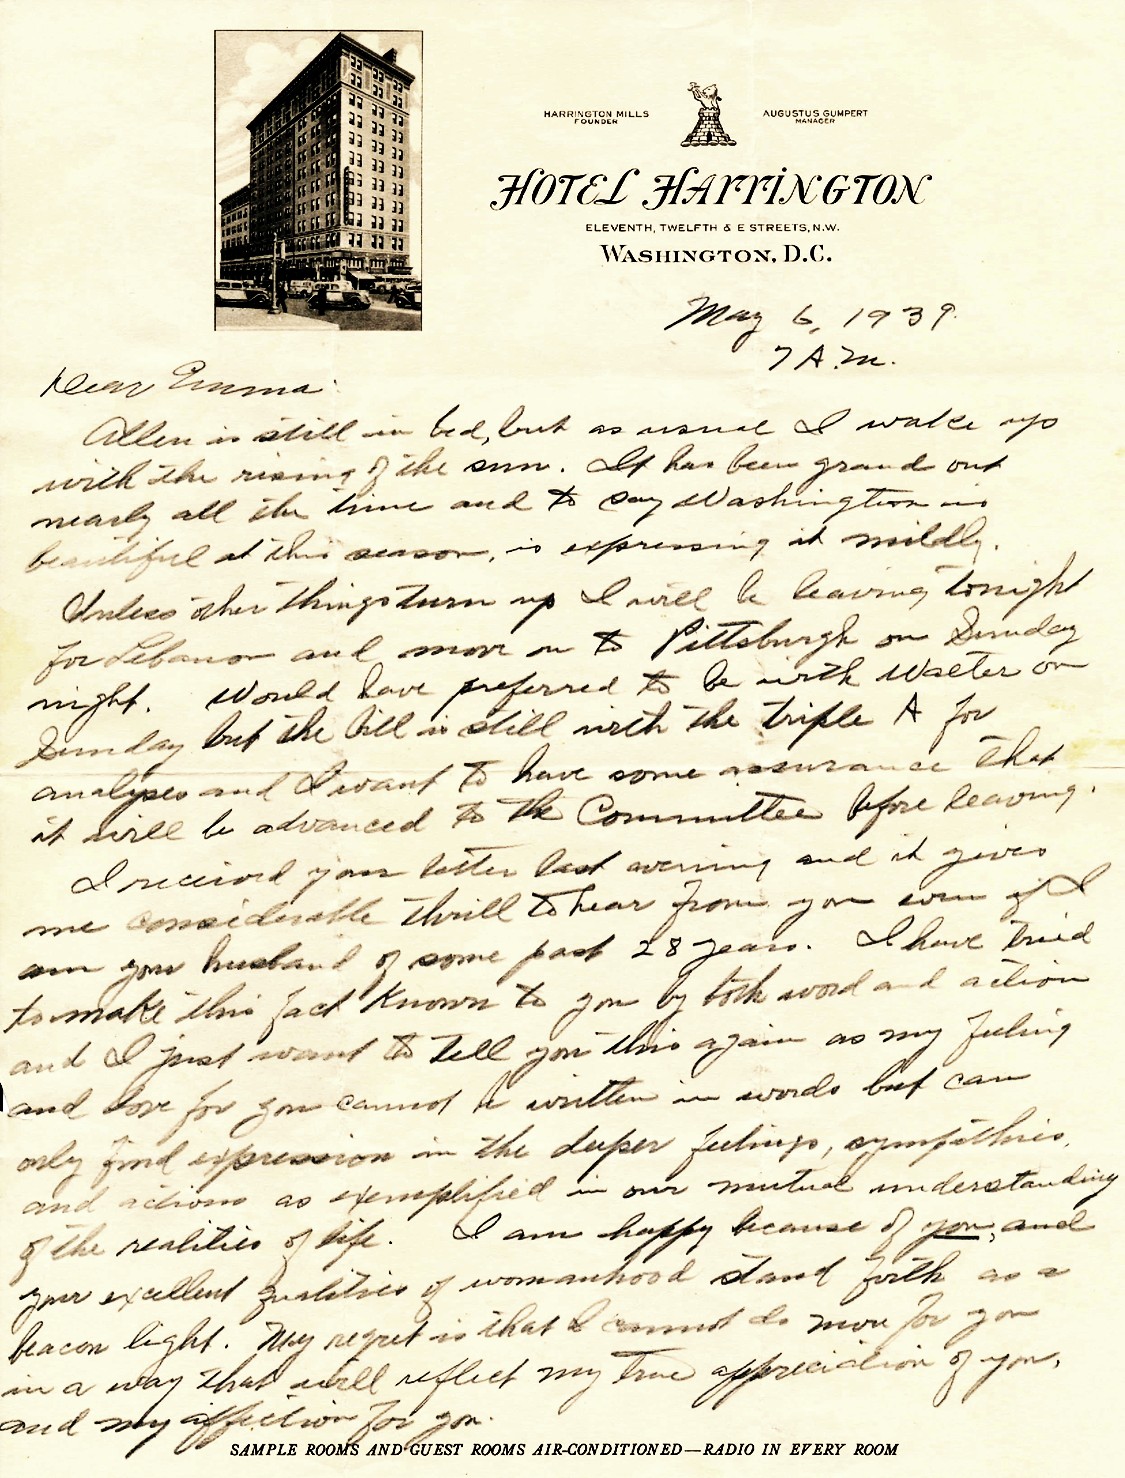 HARRINGTON MILLS
FOUNDER
AUGUSTUS GUMPERT
MANAGER
HOTEL HARRINGTON
ELEVENTH, TWELFTH & E STREETS, N.W.
WASHINGTON, D.C.
May 6, 1939.
7 A.M.
Dear Emma:
Allen is still in bed, but as usual I wake up
with the rising of the sun. It has been grand out
nearly all the time and to say Washington is
beautiful at this season, is expressing it mildly.
Unless other things turn up I will be leaving tonight
for Lebanon and move on to Pittsburgh on Sunday
night. Would have preferred to be with Walter on
Sunday but the bill is still with the triple A for
analyses and I want to have some assurance that
it will be advanced to the Committee before leaving.
I received your letter last evening and it gives
me considerable thrill to hear from you even if I
am your husband of some past 28 years. I have tried
to make this fact known to you by both word and action
and I just want to tell you this again as my feeling
and love for you cannot be written in words but can
only find expression in the deeper feelings, sympathies,
and actions as exemplified in our mutual understanding
of the realities of life. I am happy because of you, and
your excellent qualities of womanhood stand forth as a
beacon light. My regret is that I cannot do more for you
in a way that will reflect my true appreciation of you,
and my affection for you.
SAMPLE ROOMS AND GUEST ROOMS AIR-CONDITIONED—RADIO IN EVERY ROOM